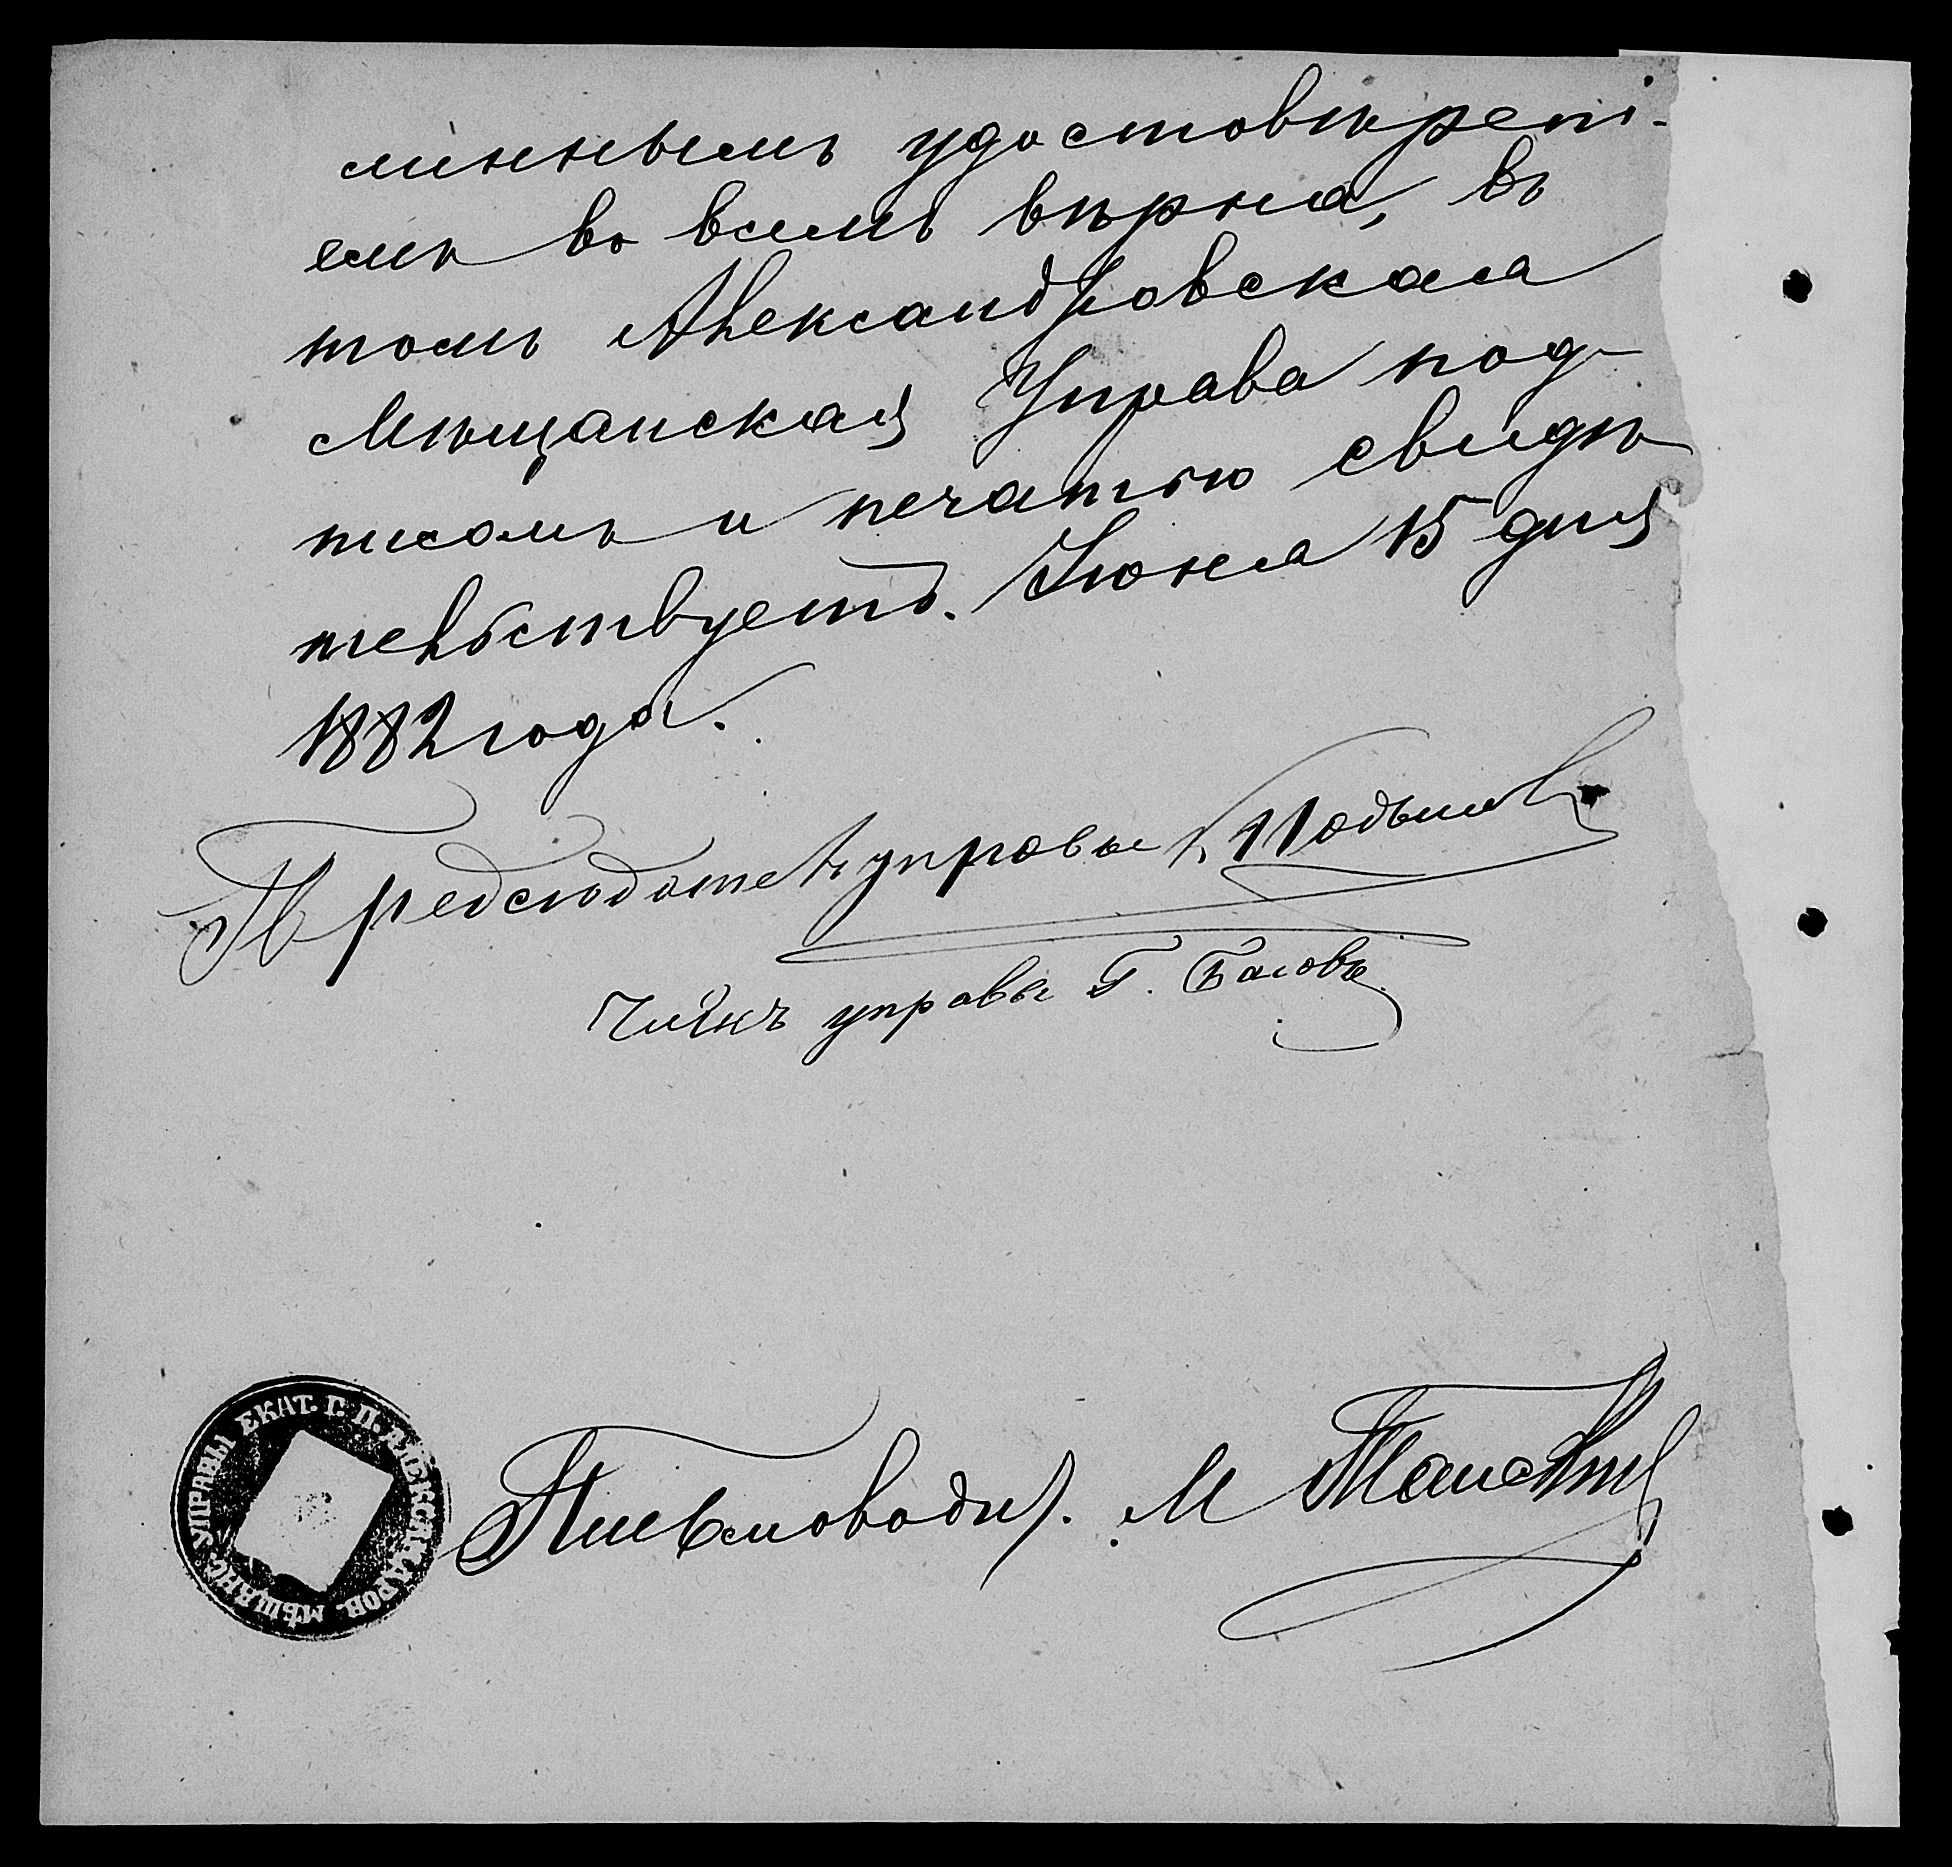 линнымъ удостовѣрені-
емъ во всемъ вѣрна, въ
томъ Александровская
Мѣщанская Управа под-
писомъ и печатью свидѣ
тельствуетъ. Іюня 15 дня
1882 года.
Предсѣдатель управы
Членъ управы Г. Басовъ
Письмоводит. М
УПРАВЫ ЕКАТ. Г. П. АЛЕКСАНДРОВ. МѢЩАНС.